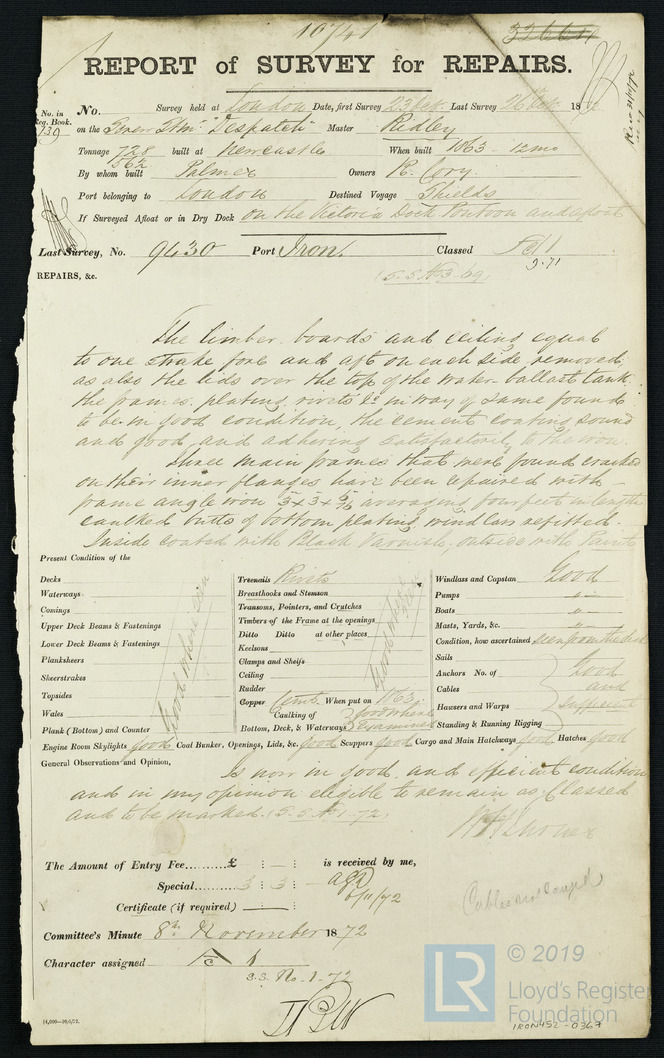 10741
REPORT of SURVEY for REPAIRS.
No. in
Reg. Book.
739
No. Survey held at London Date, first Survey 23 Oct Last Survey 26th Oct 18
on the Screw Stmr "Despatch" Master Ridley
Tonnage 728 built at Newcastle When built 1863 - 12mo
562
By whom built Palmer Owners R. Cory
Port belonging to London Destined Voyage Shields
If Surveyed Afloat or in Dry Dock on the Victoria Dock Pontoon and afloat
Last Survey, No. 9430 Port Iron. Classed 1
9.71
(S.S. No 3-69)
REPAIRS, &c.
The timber boards and ceiling equal
to one strake fore and aft on each side removed
as also the lids over the top of the water-ballast tank
the frames, plating, rivets &c in way of same found
to be in good condition, the cement coating sound
and good, and adhering satisfactorily to the iron.
Three main frames that were found cracked
on their inner flanges have been repaired with
frame angle iron averaging four feet in length
caulked butts of bottom plating, windlass refitted.
Inside coated with Black Varnish, outside with Paint
Present Condition of the
Decks
Waterways
Comings
Upper Deck Beams & Fastenings
Lower Deck Beams & Fastenings
Planksheers
Sheerstrakes
Topsides
Wales
Plank (Bottom) and Counter
Good where seen
Treenails Rivets
Breasthooks and Stemson
Transoms, Pointers, and Crutches
Timbers of the Frame at the openings
Ditto Ditto at other places
Keelsons
Clamps and Shelfs
Ceiling
Rudder
Copper Cemt. When put on 1863
Caulking of
Bottom, Deck, & Waterways
good where
examined
Good where seen
Windlass and Capstan Good
Pumps "
Boats "
Masts, Yards, &c. "
Condition, how ascertained seen from the deck
Sails
Anchors No. of
Cables
Hawsers and Warps
Standing & Running Rigging
Good
and
sufficient
Engine Room Skylights good Coal Bunker, Openings, Lids, &c. good Scuppers good Cargo and Main Hatchways good Hatches good
General Observations and Opinion,
Is now in good and efficient condition
and in my opinion eligible to remain as Classed
and to be marked (S.S. No 1-72)
The Amount of Entry Fee......... £ : - : is received by me,
Special......... 3 : 3 : -
6/11/72
Certificate (if required)
Committee's Minute 8th November 1872
Character assigned A 1
S.S. No. 1-72
14,000—20/6/72.
© 2019
LR
Lloyd's Register
Foundation
IRON452-0367